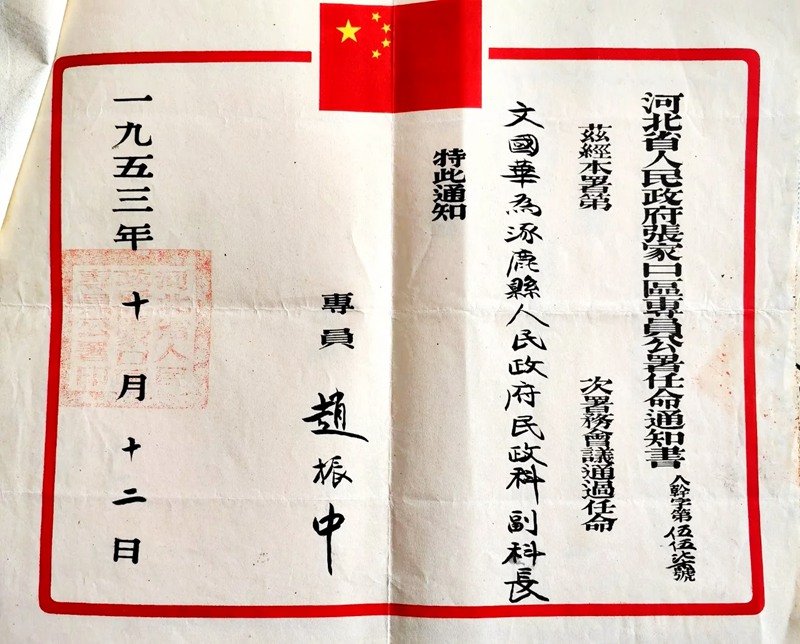 河北省人民政府張家口區專員公署任命通知書
人幹字第伍伍柒號
茲經本署第 次署務會議通過任命
文國華為涿鹿縣人民政府民政科副科長
特此通知
專員 趙振中
一九五三年十月十二日